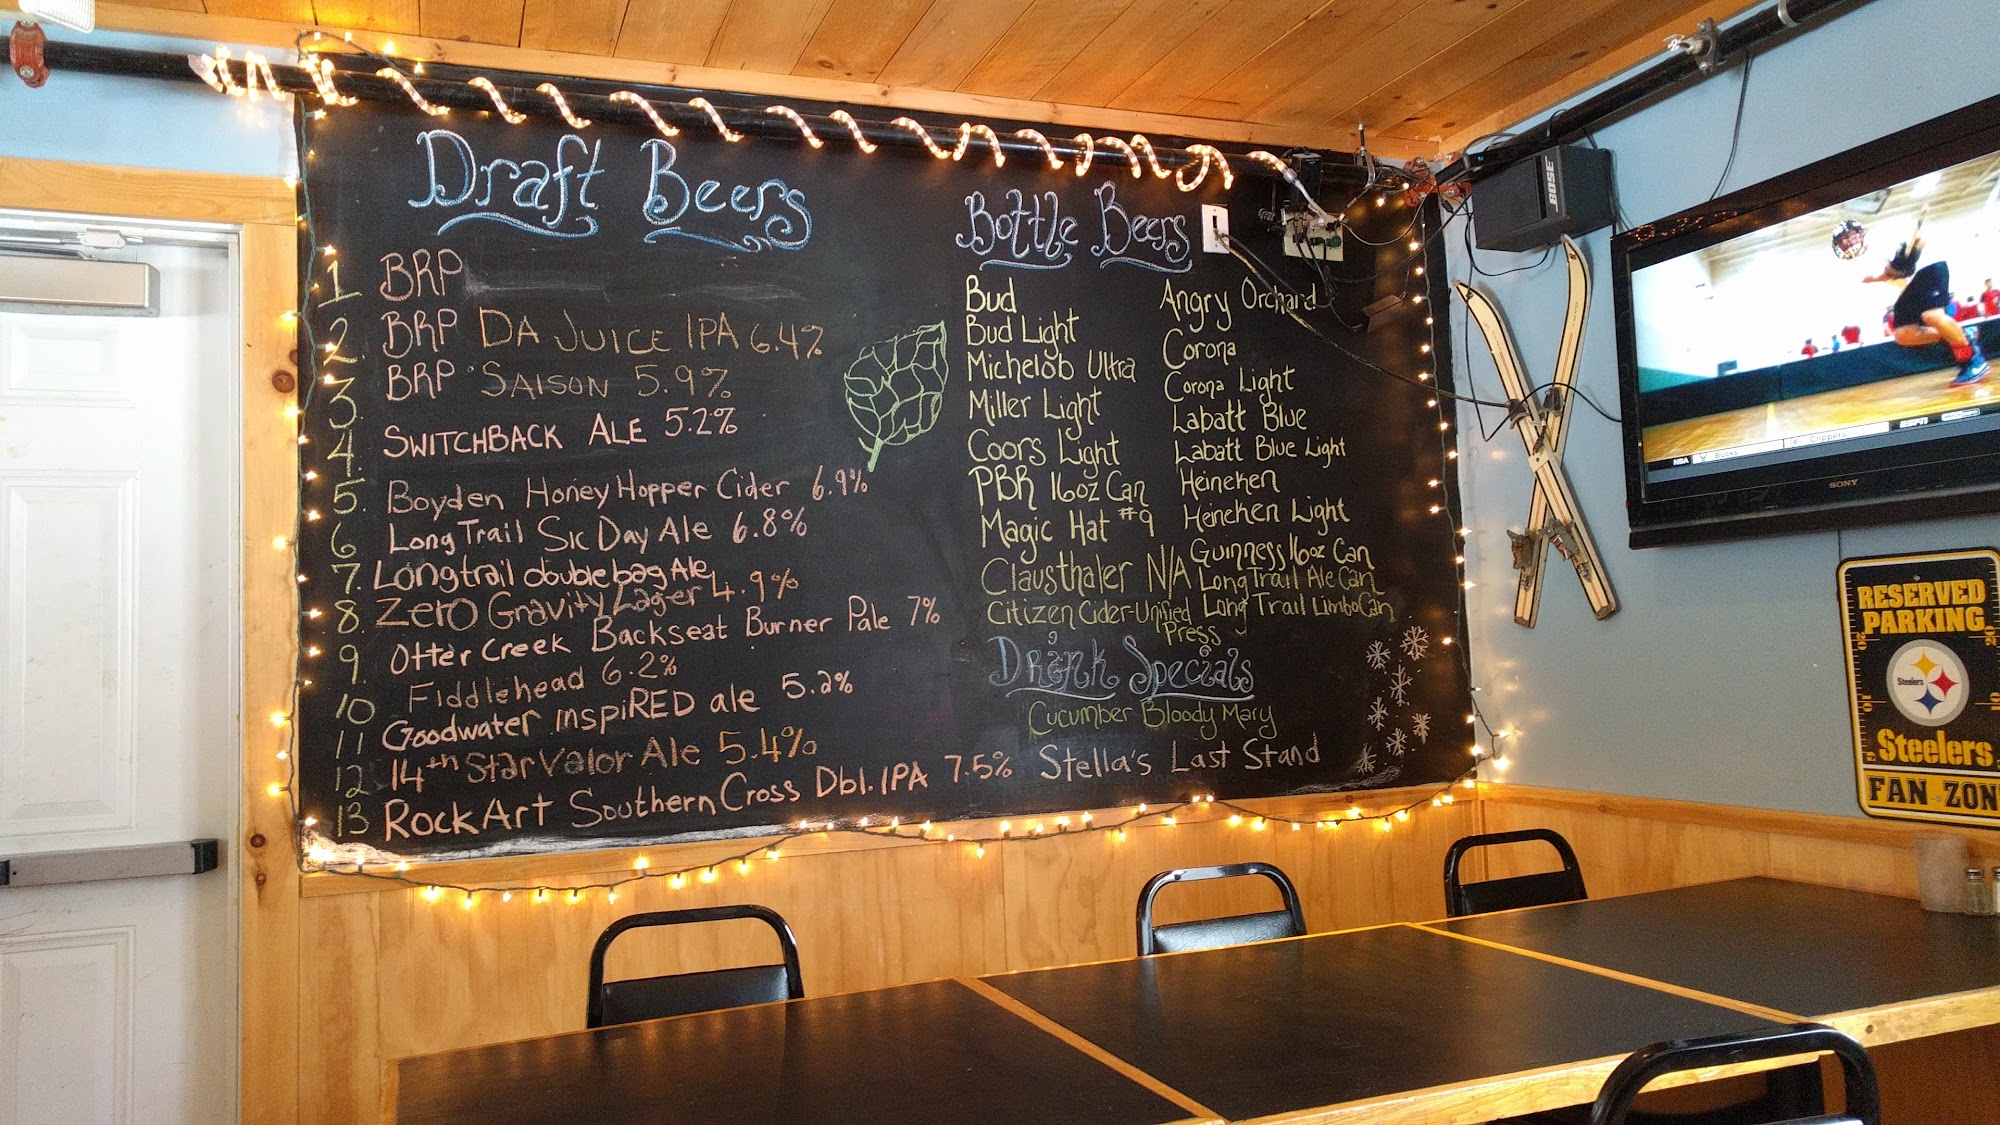 Draft Beers
1 BRP
2. BRP DA JUICE IPA 6.4%
3. BRP SAISON 5.9%
4. SWITCHBACK ALE 5.2%
5. Boyden Honey Hopper Cider 6.9%
6 Long Trail Sic Day Ale 6.8%
7. Longtrail doublebag Ale
8. Zero Gravity Lager 4.9%
9. Otter Creek Backseat Burner Pale 7%
10 Fiddlehead 6.2%
11 Goodwater inspiRED ale 5.2%
12 14th Star Valor Ale 5.4%
13 Rock Art Southern Cross Dbl. IPA 7.5%
Bottle Beers
Bud
Bud Light
Michelob Ultra
Miller Light
Coors Light
PBR 16oz Can
Magic Hat #9
Clausthaler N/A
Citizen Cider-Unified Press
Angry Orchard
Corona
Corona Light
Labatt Blue
Labatt Blue Light
Heineken
Heineken Light
Guinness 16oz Can
Long Trail Ale Can
Long Trail Limbo Can
Drink Specials
Cucumber Bloody Mary
Stella's Last Stand
BOSE
NBA
Bucks
Clippers
ESPN
SONY
RESERVED
PARKING
Steelers
Steelers
FAN ZON